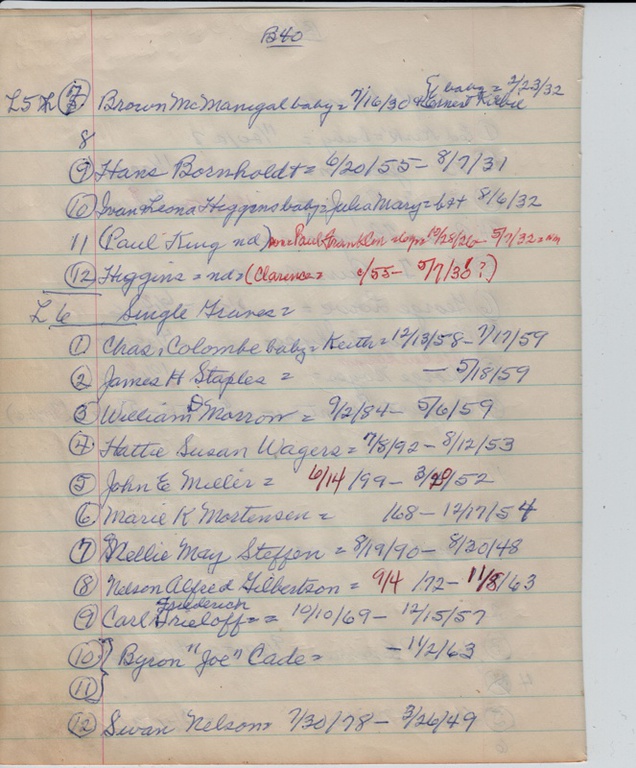 B40
{ baby = 2/23/32
L5 7 Brown McManigal baby = 7/16/30 + Ernest
8
9 Hans Bornholdt = 6/20/55 - 8/7/31
10 Ivan + Leona Higgins baby = Julia Mary = b++ 8/6/32
11 (Paul King nd) Paul Franklin = 10/28/26 - 5/7/32 =
12 Higgins = nd = (Clarence = c/55 - 5/7/38?)
L6 Single Graves =
1 Chas. Colombe baby = Keith = 12/13/58 - 7/17/59
2 James H Staples = - 5/18/59
3 William D Morrow = 9/2/84 - 5/6/59
4 Hattie Susan Wagers = 7/8/92 - 8/12/53
5 John E Miller = 6/14/99 - 3/20/52
6 Marie K Mortensen = 168 - 12/17/54
7 Nellie May Steffen = 8/19/90 - 8/30/48
8 Nelson Alfred Gilbertson = 9/4/72 - 11/8/63
Friederich
9 Carl Grieloff = = 10/10/69 - 12/15/57
10 } Byron "Joe" Cade = - 11/2/63
11
12 Swan Nelson 7/30/78 - 3/26/49